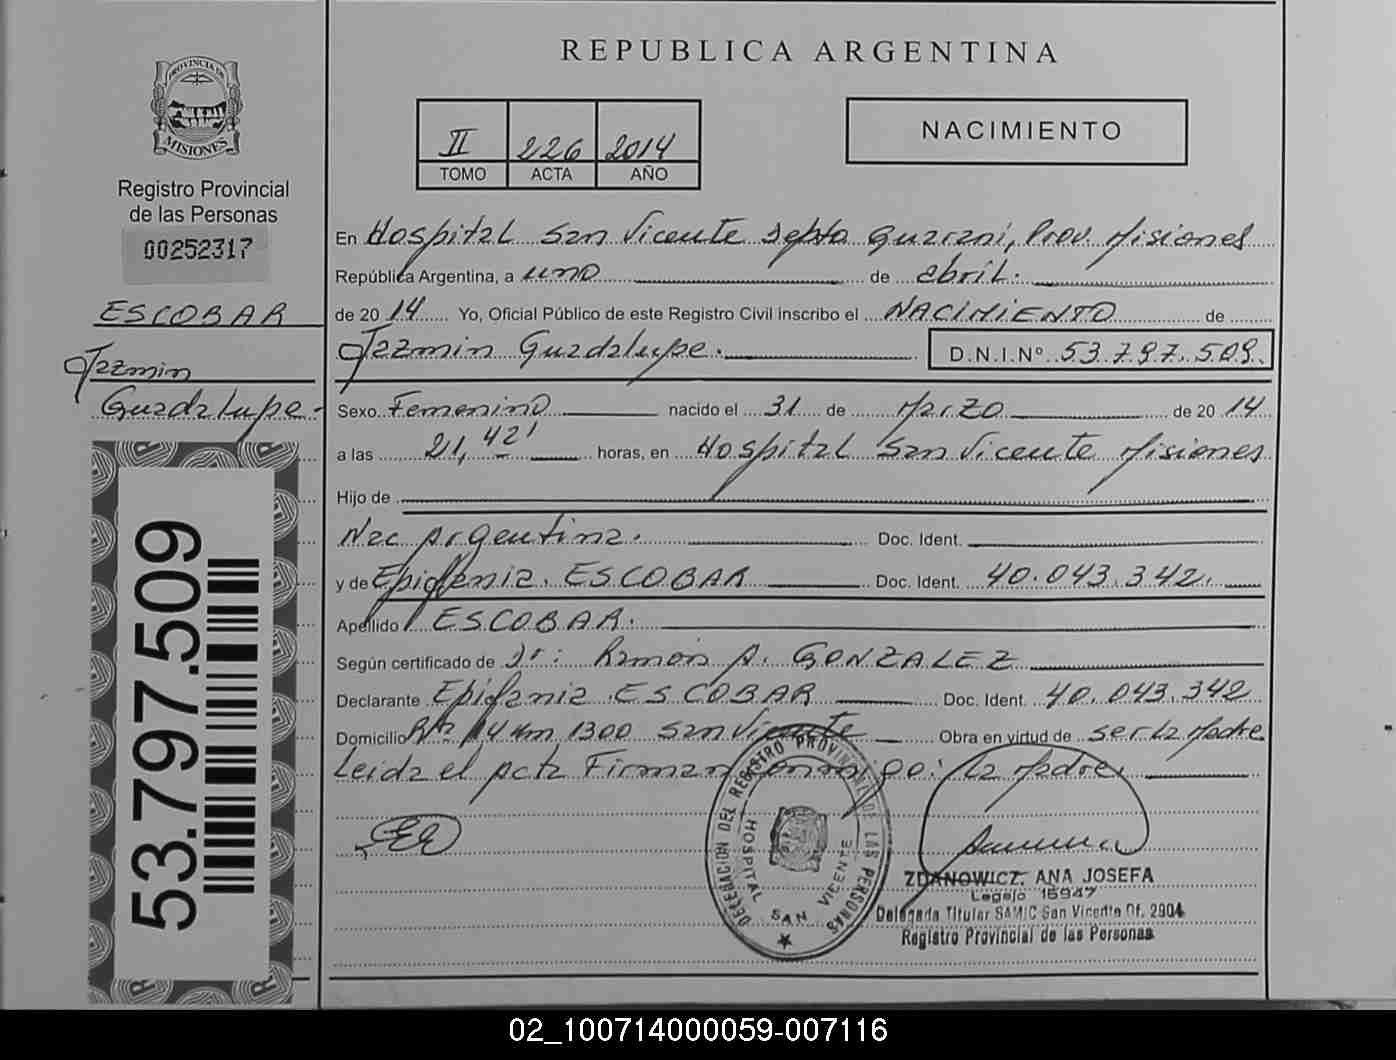 REPUBLICA ARGENTINA
PROVINCIA DE
MISIONES
Registro Provincial
de las Personas
00252317
ESCOBAR
Jazmin
Guadalupe-
53.797.509
II 226 2014
TOMO ACTA AÑO
NACIMIENTO
En Hospital San Vicente Depto Guarani, Prov. Misiones
República Argentina, a uno de abril.
de 20 14 Yo, Oficial Público de este Registro Civil inscribo el NACIMIENTO de
Jazmin Guadalupe. D.N.I.Nº 53.797.509.
Sexo Femenino nacido el 31 de Marzo de 20 14
a las 21,42' horas, en Hospital San Vicente Misiones
Hijo de
Nac Argentina. Doc. Ident.
y de Epifania ESCOBAR Doc. Ident. 40.043.342.
Apellido ESCOBAR.
Según certificado de Dr: Ramón A. GONZALEZ
Declarante Epifania ESCOBAR Doc. Ident. 40.043.342
Domicilio Rta 14 Km 1300 San Vicente Obra en virtud de ser la Madre
Leida el Acta Firman conmigo: la Madre
DELEGACION DEL REGISTRO PROVINCIAL DE LAS PERSONAS
HOSPITAL SAN VICENTE
ZDANOWICZ, ANA JOSEFA
Legajo 15947
Delegada Titular SAMIC San Vicente Of. 2904
Registro Provincial de las Personas
02_100714000059-007116